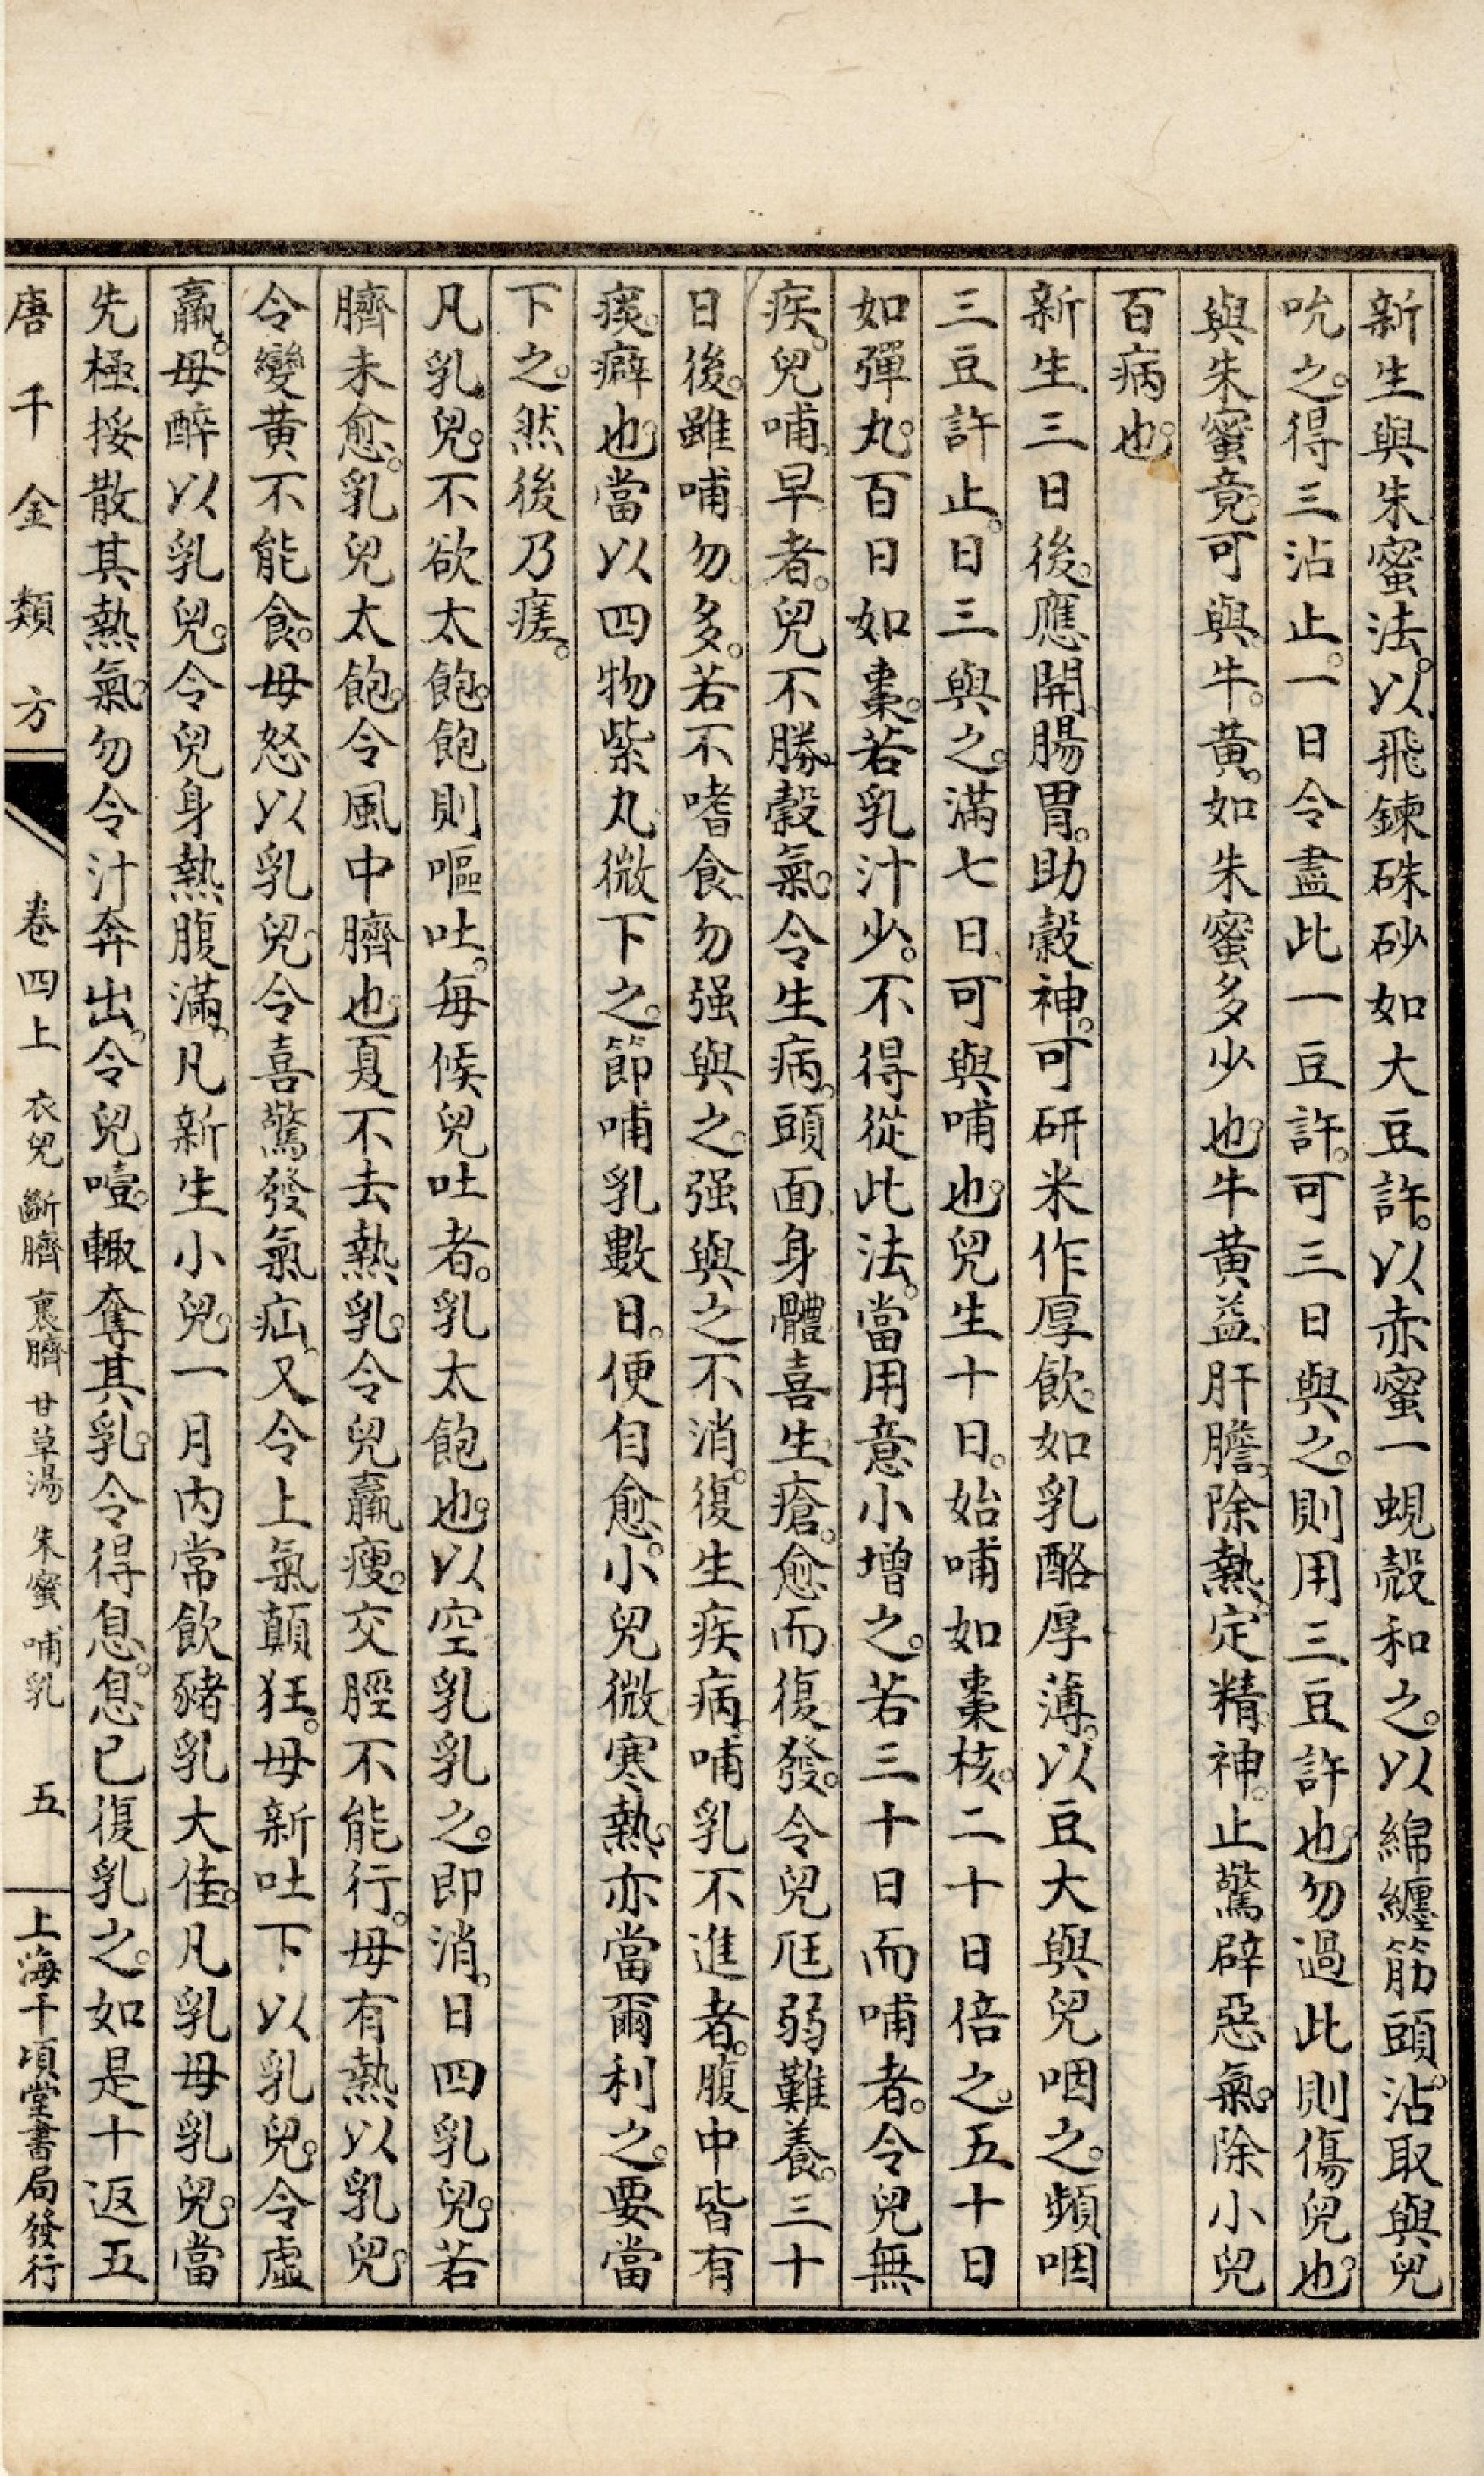 新生與朱蜜法。以飛鍊硃砂如大豆許。以赤蜜一蜆殼和之。以綿纏筋頭。沾取與兒
吮之。得三沾止。一日令盡此一豆許。可三日與之。則用三豆許也。勿過此則傷兒也。
與朱蜜竟。可與牛黃。如朱蜜多少也。牛黃益肝膽。除熱。定精神。止驚辟惡氣。除小兒
百病也。
新生三日後。應開腸胃。助穀神。可研米作厚飲。如乳酪厚薄。以豆大與兒咽之。頻咽
三豆許止。日三與之。滿七日可與哺也。兒生十日。始哺如棗核。二十日倍之。五十日
如彈丸。百日如棗。若乳汁少。不得從此法。當用意小增之。若三十日而哺者。令兒無
疾。兒哺早者。兒不勝穀氣。令生病。頭面身體喜生瘡。愈而復發。令兒尫弱難養。三十
日後。雖哺勿多。若不嗜食。勿强與之。强與之不消。復生疾病。哺乳不進者。腹中皆有
痰癖也。當以四物紫丸微下之。節哺乳數日。便自愈。小兒微寒熱。亦當爾利之。要當
下之。然後乃瘥。
凡乳兒。不欲太飽。飽則嘔吐。每候兒吐者。乳太飽也。以空乳乳之。即消。日四乳兒。若
臍未愈。乳兒太飽。令風中臍也。夏不去熱乳。令兒羸瘦。交脛不能行。母有熱以乳兒。
令變黃不能食。母怒以乳兒。令喜驚發氣疝。又令上氣顛狂。母新吐下以乳兒。令虛
羸。母醉以乳兒。令兒身熱腹滿。凡新生小兒。一月內常飲豬乳大佳。凡乳母乳兒。當
先極挼散其熱氣。勿令汁奔出。令兒噎。輙奪其乳。令得息。息已復乳之。如是十返五
唐千金類方　卷四上　衣兒　斷臍　裹臍　甘草湯　朱蜜　哺乳　五　上海千頃堂書局發行